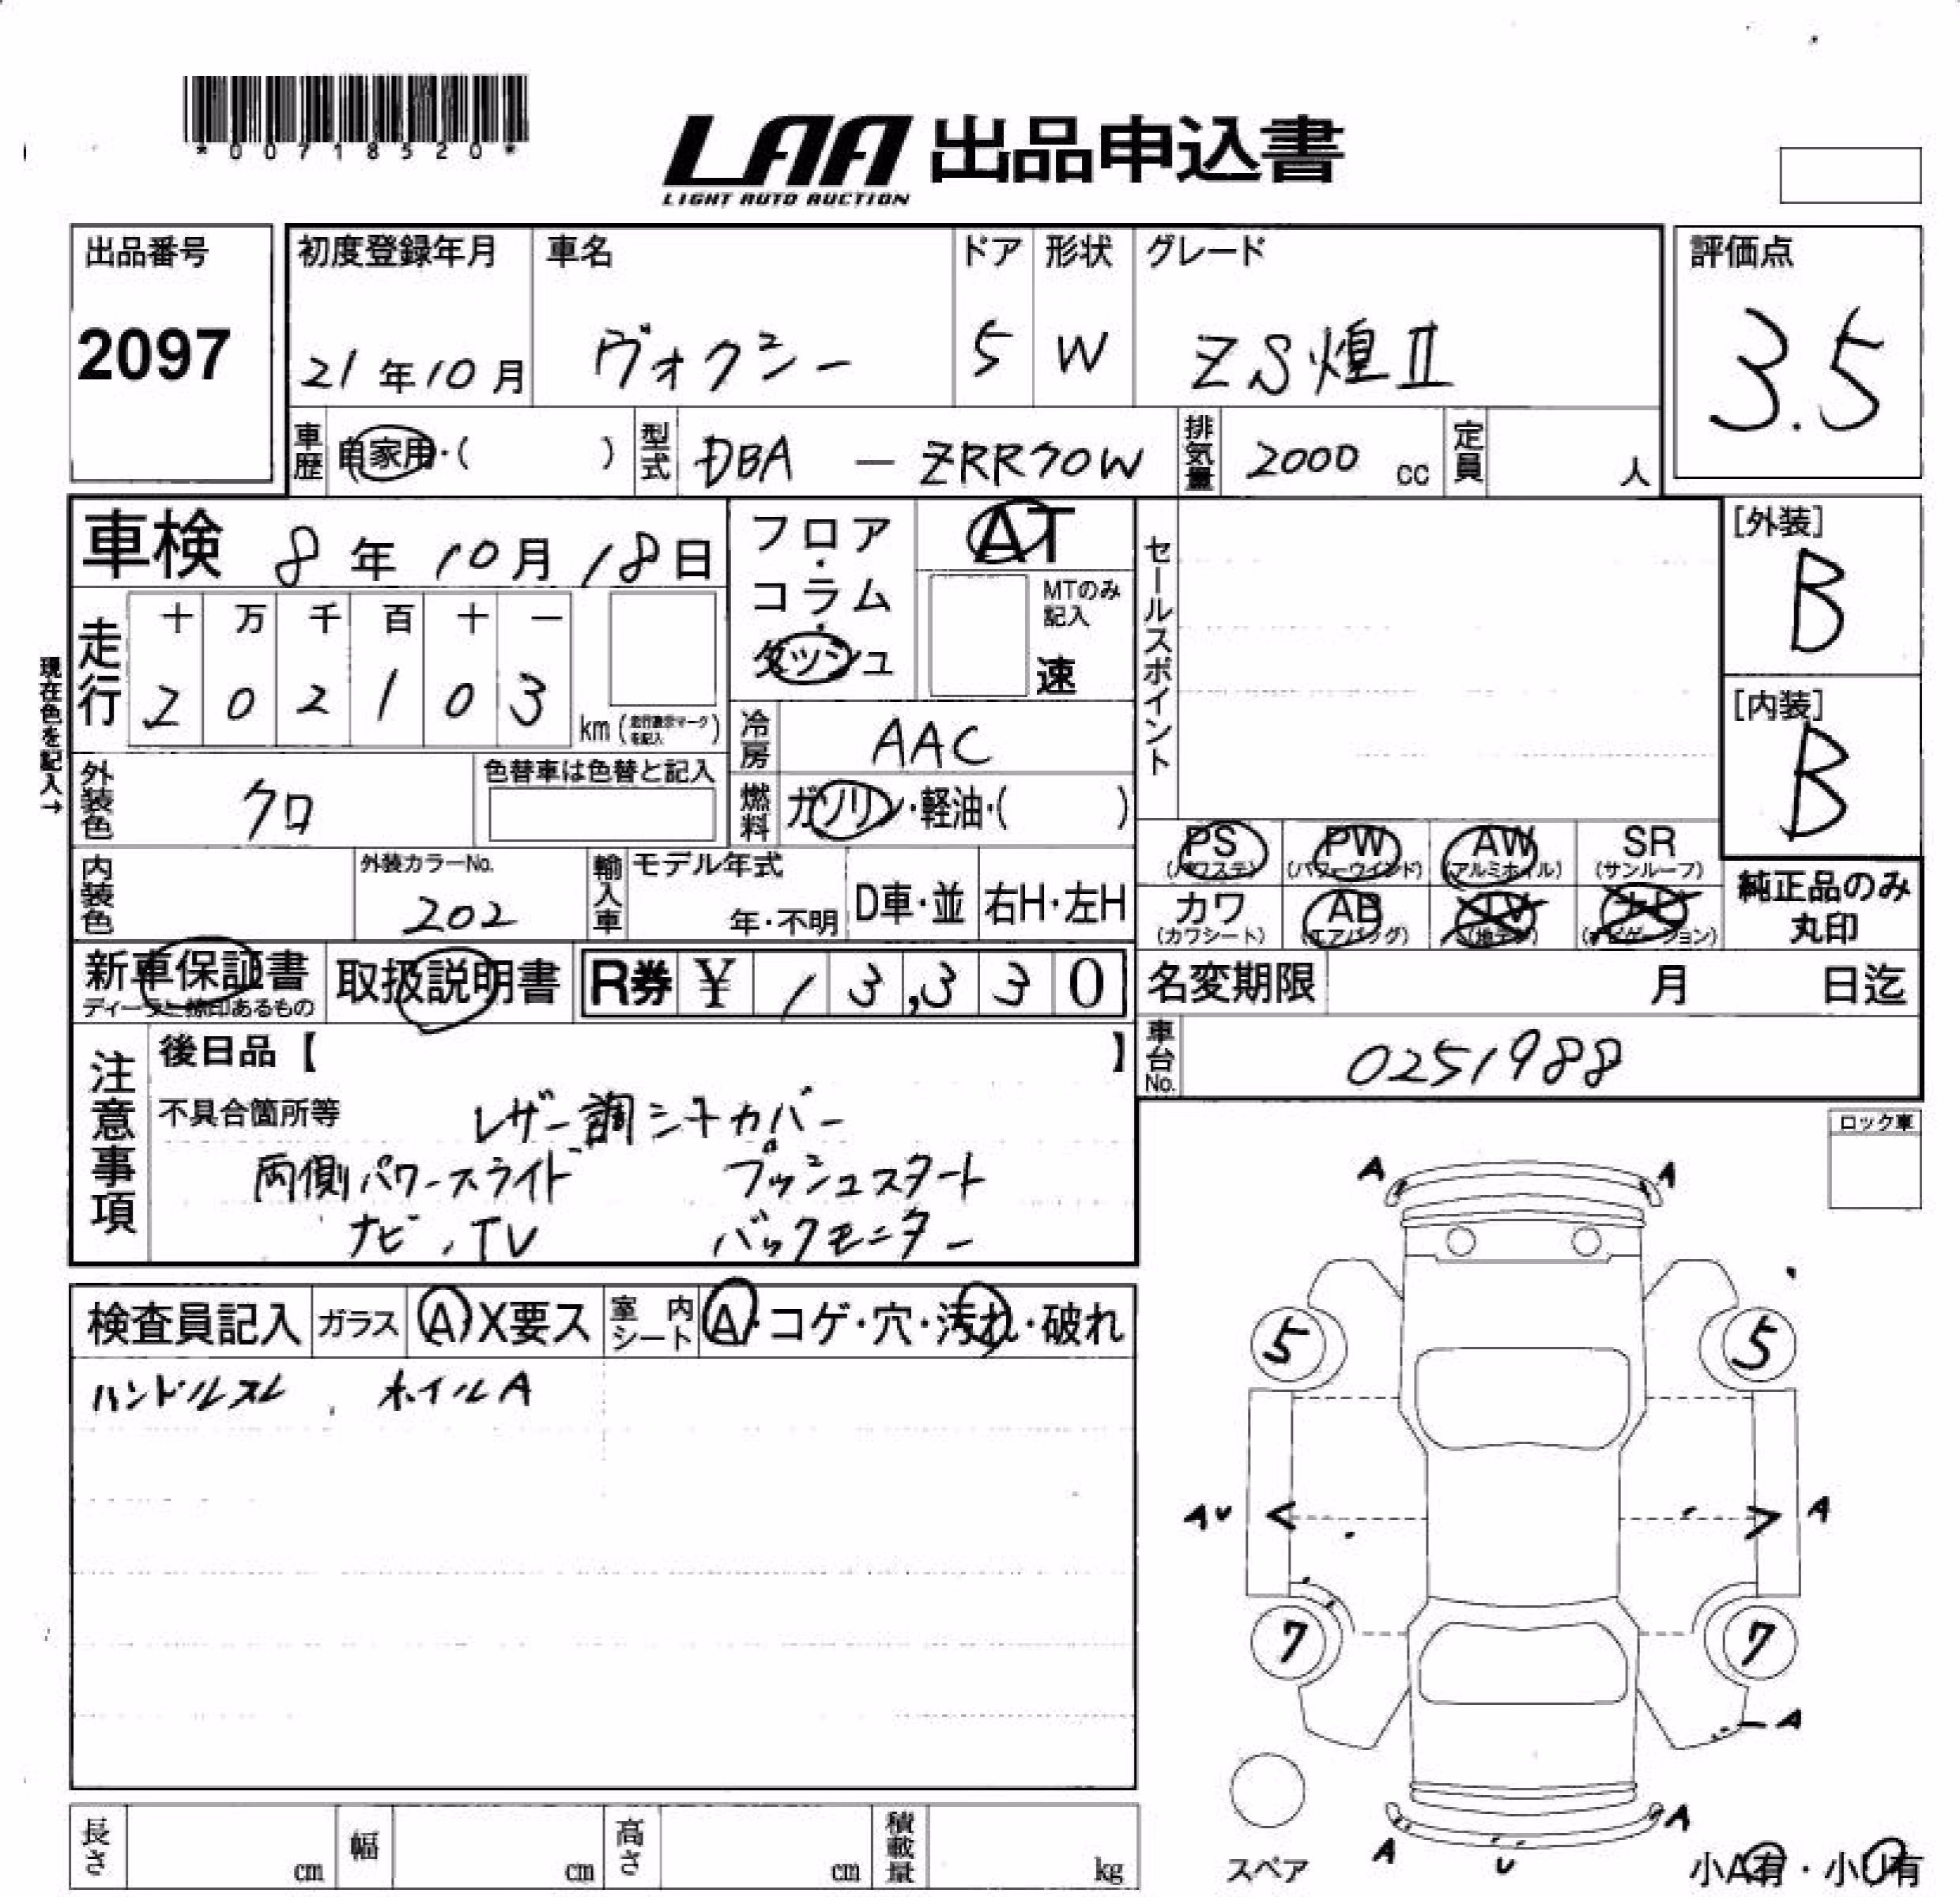 *00718520*
LAA 出品申込書
LIGHT AUTO AUCTION
出品番号 初度登録年月 車名 ドア 形状 グレード 評価点
2097 21年10月 ヴォクシー 5 W ZS煌Ⅱ 3.5
車歴 自家用・( ) 型式 DBA — ZRR70W 排気量 2000 cc 定員 人
車検 8年10月18日 フロア・コラム・ダッシュ AT セールスポイント [外装] B
MTのみ記入 速
現在色を記入→
走行 十 万 千 百 十 一
2 0 2 1 0 3 km (走行表示マークを記入)
冷房 AAC [内装] B
外装色 クロ 色替車は色替と記入 燃料 ガソリン・軽油・( )
PS (パワステ) PW (パワーウインド) AW (アルミホイル) SR (サンルーフ)
内装色 外装カラーNo. 202 輸入車 モデル年式 年・不明 D車・並 右H・左H
カワ (カワシート) AB (エアバッグ) TV (地デジ) (ナビゲーション) 純正品のみ丸印
新車保証書 取扱説明書 R券 ¥ 13,330 名変期限 月 日迄
車台No. 0251988
注意事項 後日品【 】
不具合箇所等 レザー調シートカバー
両側パワースライド プッシュスタート
ナビ、TV バックモニター
ロック車
A A
検査員記入 ガラス A X要ス 室内シート A・コゲ・穴・汚れ・破れ
ハンドルスレ、ホイルA
5 5
AU < > A
7 7
A
A
A U
スペア
小A有・小U有
長さ cm 幅 cm 高さ cm 積載量 kg